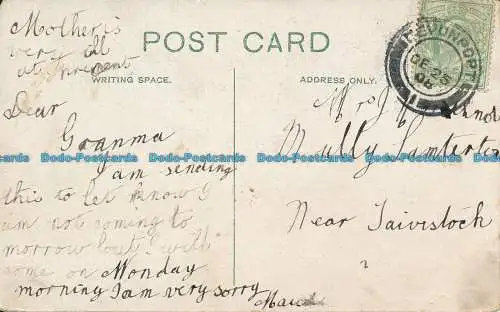 Mother is
very ill
at
POST CARD
WRITING SPACE.
ADDRESS ONLY.
DEVONPORT
DE 23
Dear
Granma
I am sending
this to let know I
am not coming to
morrow but I will
come on Monday
morning I am very sorry
Maud
Mrs J
Near Taivistoch
Dodo-Postcards Dodo-Postcards Dodo-Postcards Dodo-Postcards Dodo-Postcards